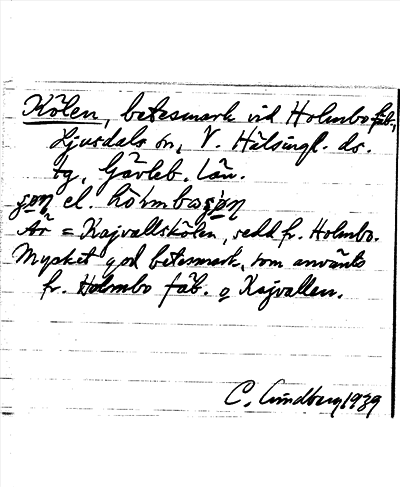 Kölen, betesmark vid Holmbo fäb.,
Ljusdals sn, V. Hälsingl. ds.
tg, Gävleb. län.
el.
Är = Kajvallskölen, sedd fr. Holmbo.
Mycket god betesmark, som använts
fr. Holmbo fäb. o Kajvallen.
C. Lundberg 1939